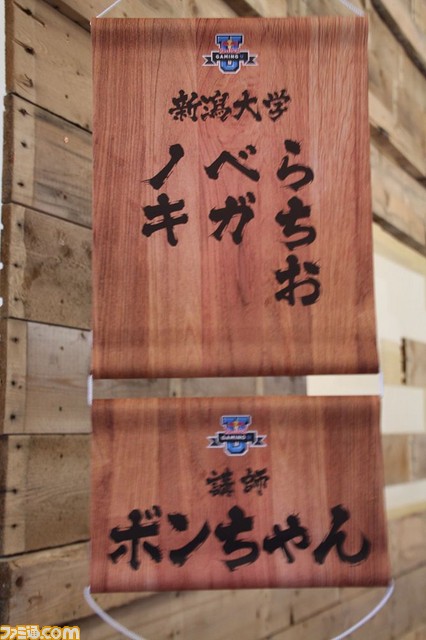 GAMING U
新潟大学
らちお
ベガ
ノキ
GAMING U
講師
ボンちゃん
ファミ通.com